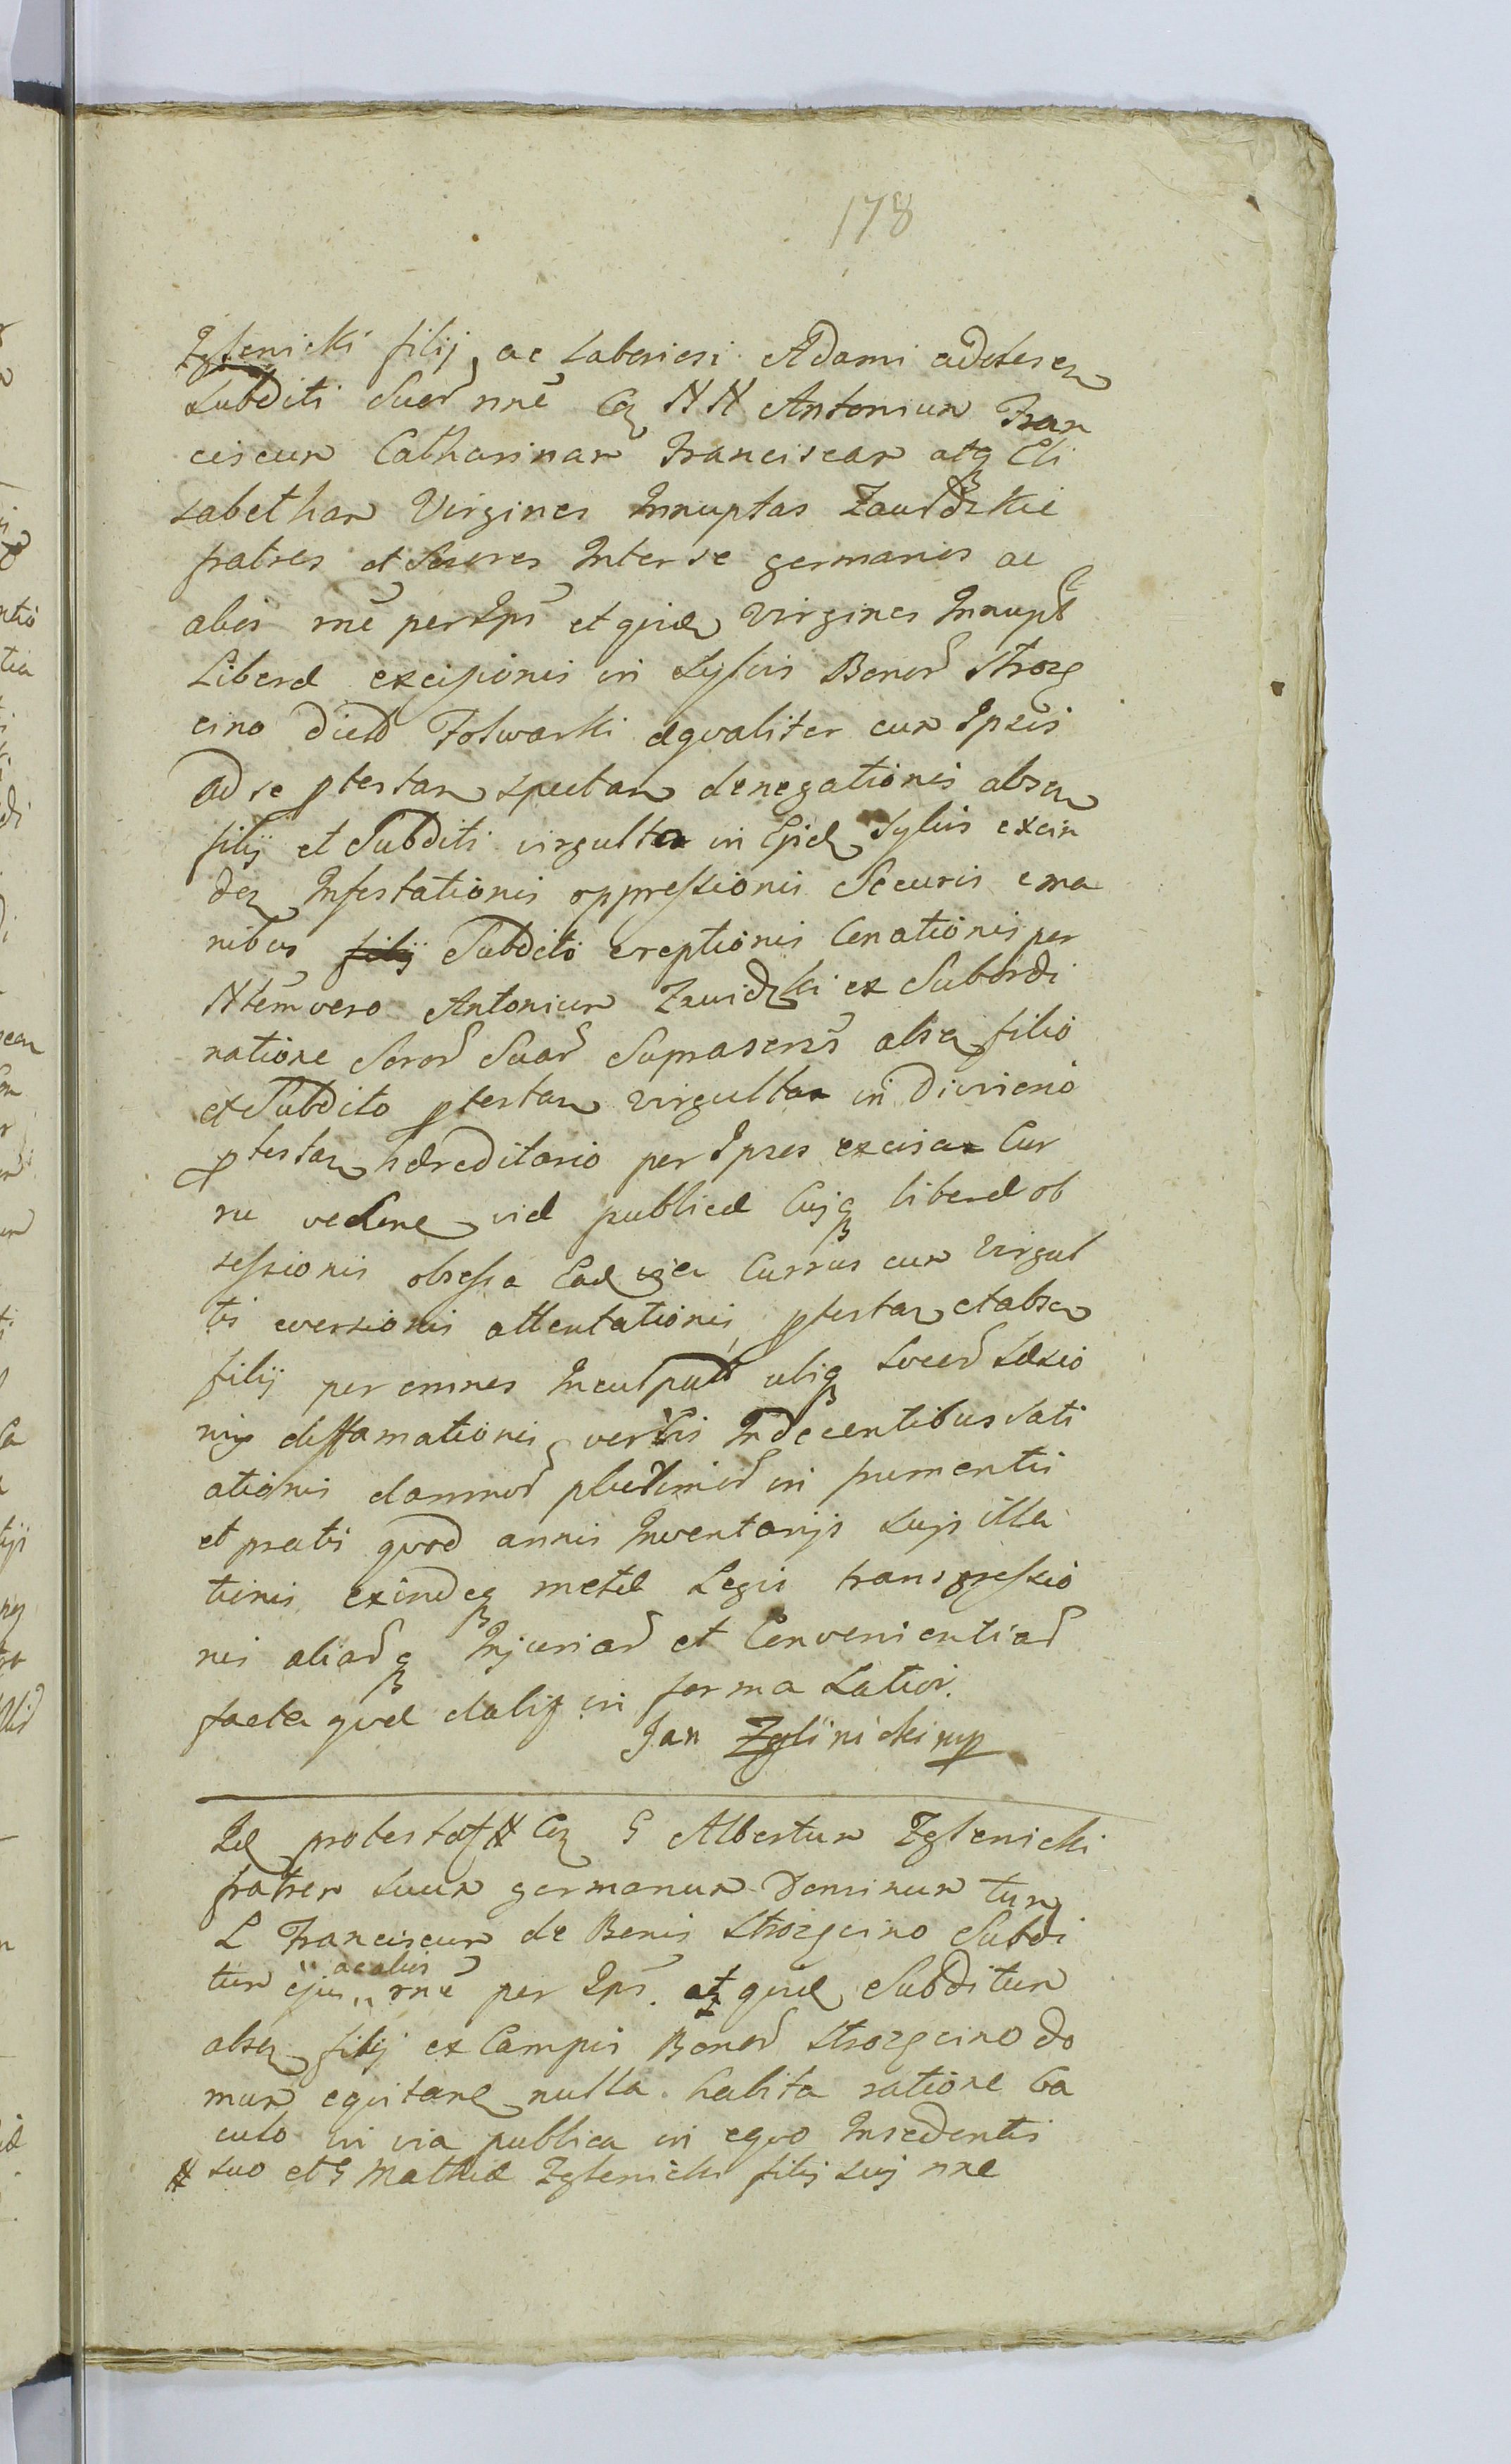 178
Zglenicki filij ac Laboriosi Adami adolescen
subditi suor nne Con NN Antonium Fran
ciscum Catharinam Franciscam atq Eli
sabetham Virgines Innuptas Zawidzkie
fratres et Sorores Inter se germanos ac
alios rne per Ips et quid Virgines Innupt
Liberæ excisionis in Sylvis Bonor Strozg
cino dicto Folwarki æqualiter cum Ipsis
ad se ptestan spectan denegationis absen
filij et Subditi virgulta in Ejsd Sylvis excin
den Infestationis oppressionis Securis e ma
nibus filij Subdito ereptionis Conationis per
Ntem vero Antonium Zawidzki ex Subordi
natione Soror Suar Suprascrs absen filio
et Subdito ptestan virgulta in Divisione
ptestan hæreditario per Ipsos excisa Cur
ru vehene viæ publicæ Cujq liberæ ob
sessionis obsessa Ead via Currus cum Virgul
tis eversionis attentationis ptestan et absen
filij per omnes Inculpat ubiq locor Læsio
nis diffamationis verbis Indecentibus Sati
ationis damnor plurimor in frumentis
et pratis quod annis Inventarijs suis illa
tionis exindeq metæ Legis transgressio
nis aliarq Injuriar et Convenientiar
facta que dabit in forma Latior.
Jan Zglinicki mp
Id protestat # Con G Albertum Zglenicki
fratrem suum germanum Dominum tum
L Franciscum de Bonis Strozgcino Subdi
tum ejus ac alios rne per Ips. atq quid Subditum
absen filij ex Campis Bonor Strozgcino do
mum equitane nulla habita ratione ba
culo in via publica in equo Insedentis
# suo et G Mathiæ Zglenicki filij sui nne